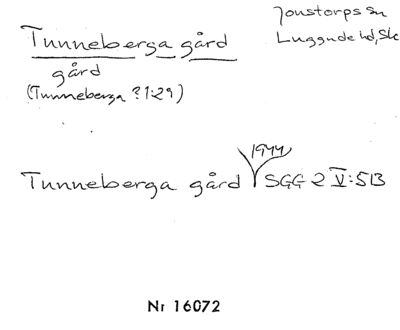 Tunneberga gård
Jonstorps sn
Luggude hd, Sk
gård
(Tunneberga ?1:29)
1944
Tunneberga gård SGG 2 V:5B
Nr 16072